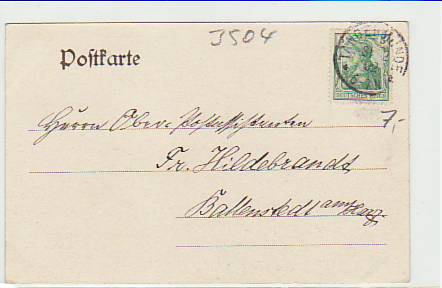 3504
Postkarte
TANGERMÜNDE
7,-
Herrn Ober-Postassistenten
Fr. Hildebrandt
Ballenstedt am Harz